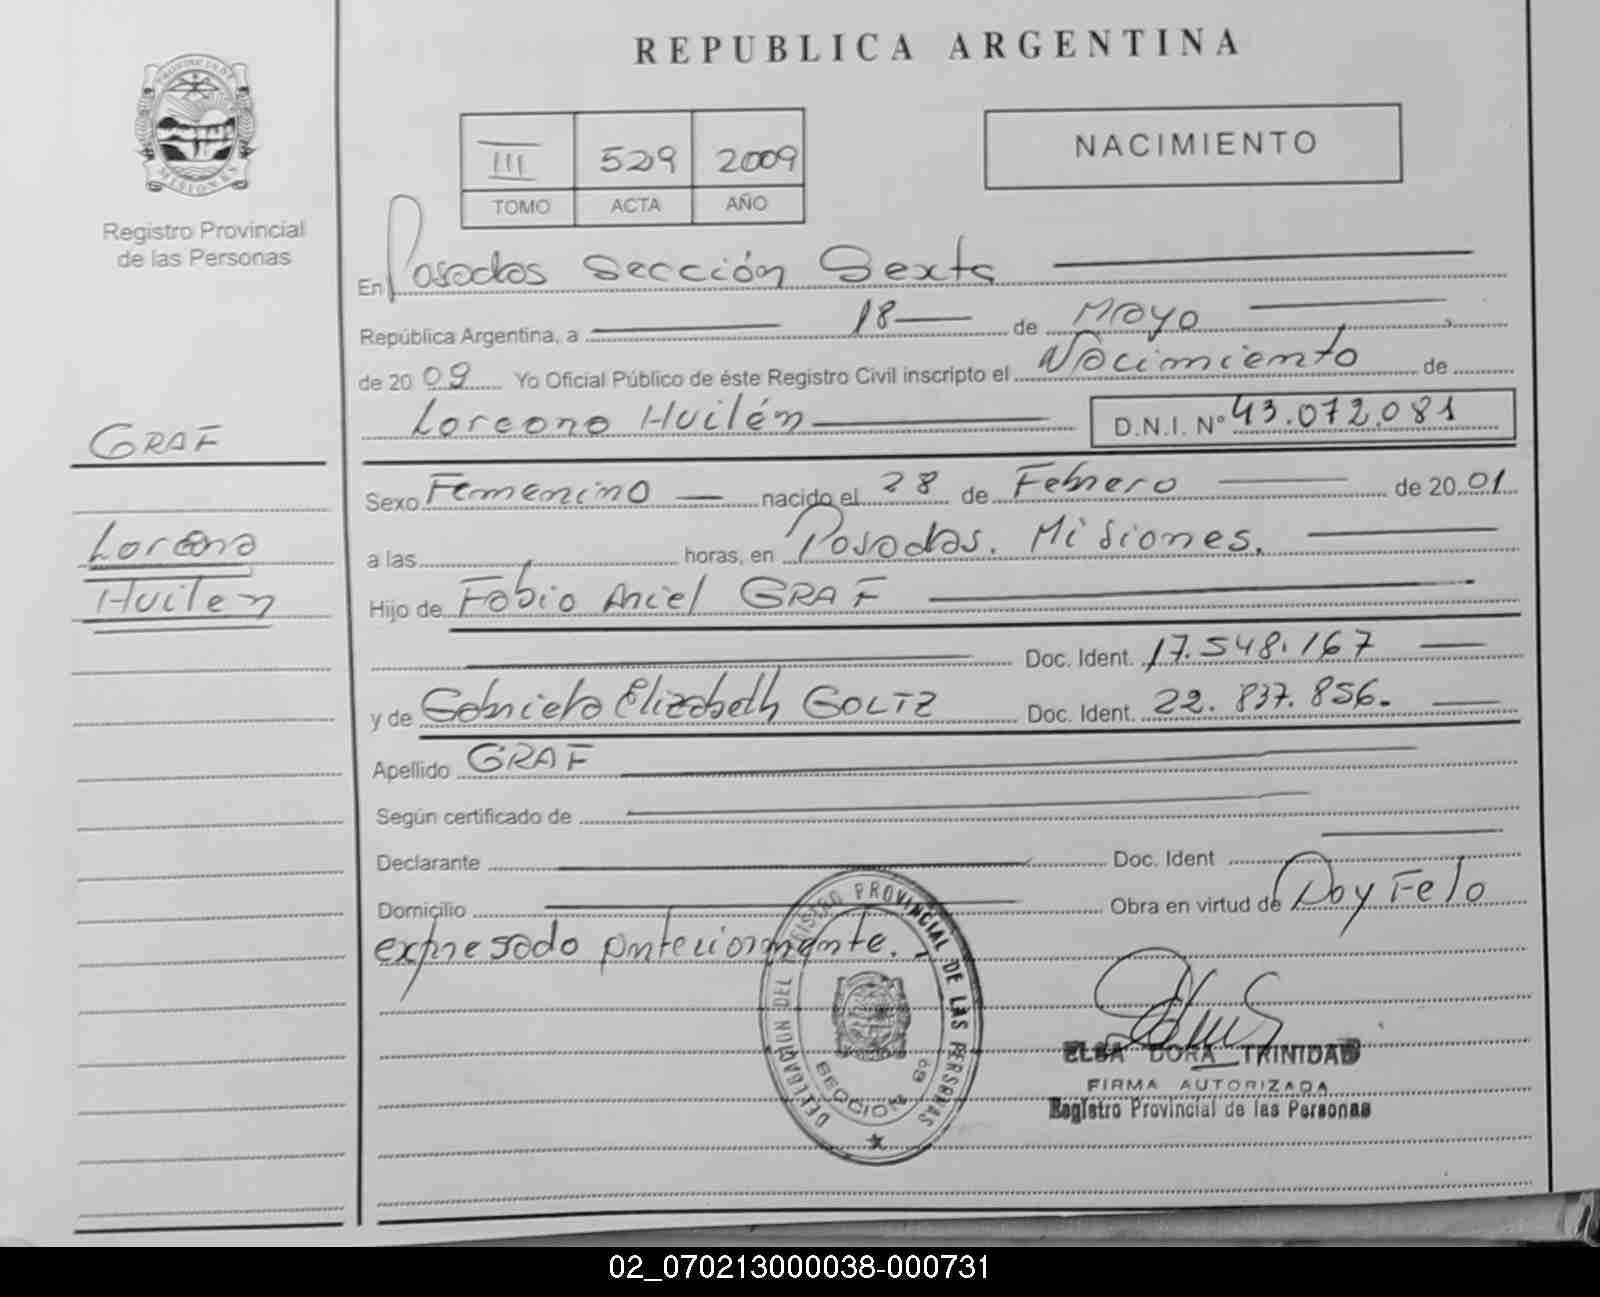 REPUBLICA ARGENTINA
PROVINCIA DE MISIONES
Registro Provincial
de las Personas
III 529 2009
TOMO ACTA AÑO
NACIMIENTO
En Posadas Sección Sexta
República Argentina, a 18 de Mayo
de 2009 Yo Oficial Público de éste Registro Civil inscripto el Nacimiento de
Loreana Huilén D.N.I. Nº 43.072.081
GRAF
Loreana
Huilen
Sexo Femenino nacido el 28 de Febrero de 2001
a las horas, en Posadas. Misiones.
Hijo de Fabio Ariel GRAF
Doc. Ident. 17.548.167
y de Gabriela Elizabeth GOLTZ Doc. Ident. 22.837.856.
Apellido GRAF
Según certificado de
Declarante Doc. Ident
Domicilio Obra en virtud de Doy Fe lo
expresado anteriormente.
DELEGACION DEL REGISTRO PROVINCIAL DE LAS PERSONAS
SECCION 6ª
ELSA DORA TRINIDAD
FIRMA AUTORIZADA
Registro Provincial de las Personas
02_070213000038-000731